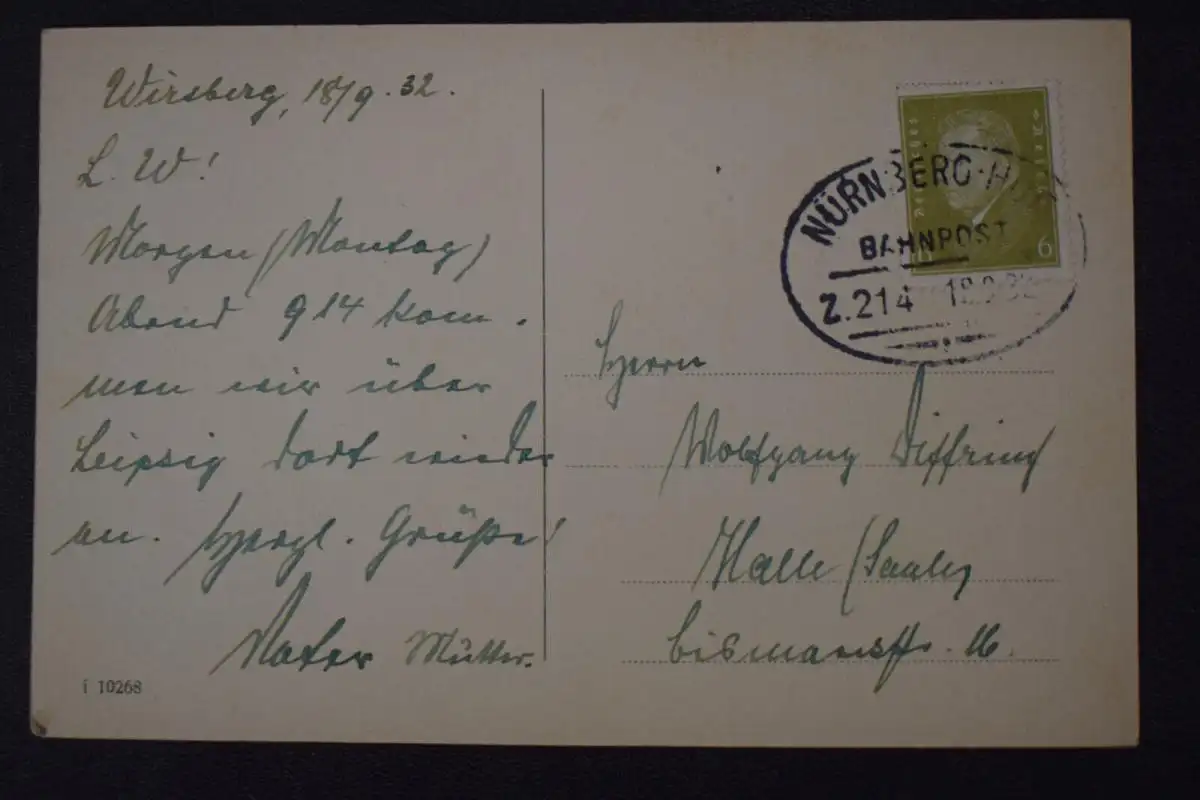 Wirsberg, 18/9. 32.
L. W!
Morgen (Montag)
Abend 9 14 kom-
men wir über
Leipzig dort wieder
an. Herzl. Grüße!
Vater Mutter.
i 10268
Deutsches Reich
6
NÜRNBERG-
BAHNPOST
Z.214 18.9.32
Herrn
Wolfgang
Halle (Saale)
Bismarckstr. 16.